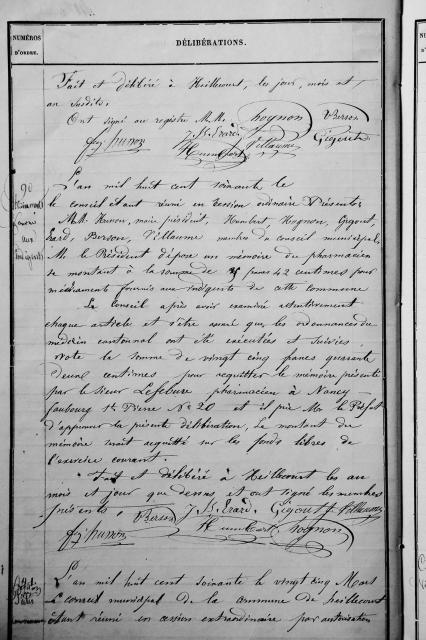 NUMÉROS
D'ORDRE.
DÉLIBÉRATIONS.
Fait et délibéré à Heillecourt, les jour, mois et
an susdits.
Ont signé au registre M.M. Hognon Berson
J. Bte Erard Gigout
Humbert Villaume
90
L'an mil huit cent soixante le
le conseil étant réuni en session ordinaire Présents:
M.M. maire président, Humbert, Hognon, Gigout,
Erard, Berson, Villaume membres du conseil municipal,
M. le Président dépose un mémoire du pharmacien
se montant à la somme de francs 42 centimes pour
médicaments fournis aux indigents de cette commune
Le Conseil après avoir examiné attentivement
chaque article et s'être assuré que les ordonnances du
médecin cantonnal ont été exécutées et suivies,
vote la somme de vingt cinq francs quarante
deux centimes pour acquitter le mémoire présenté
par le Sieur Lefebure pharmacien à Nancy
faubourg St Pierre No 20 et il prie Mr le Préfet
d'approuver la présente délibération, le montant du
mémoire sera acquitté sur les fonds libres de
l'exercice courant.
Fait et délibéré à Heillecourt les an
mois et jour que dessus et ont signé les membres
présents. Berson J. Bte Erard. Gigout Villaume
Humbert Hognon
L'an mil huit cent soixante le vingt cinq Mars
le conseil municipal de la commune de heillecourt
étant réuni en session extraordinaire par autorisation